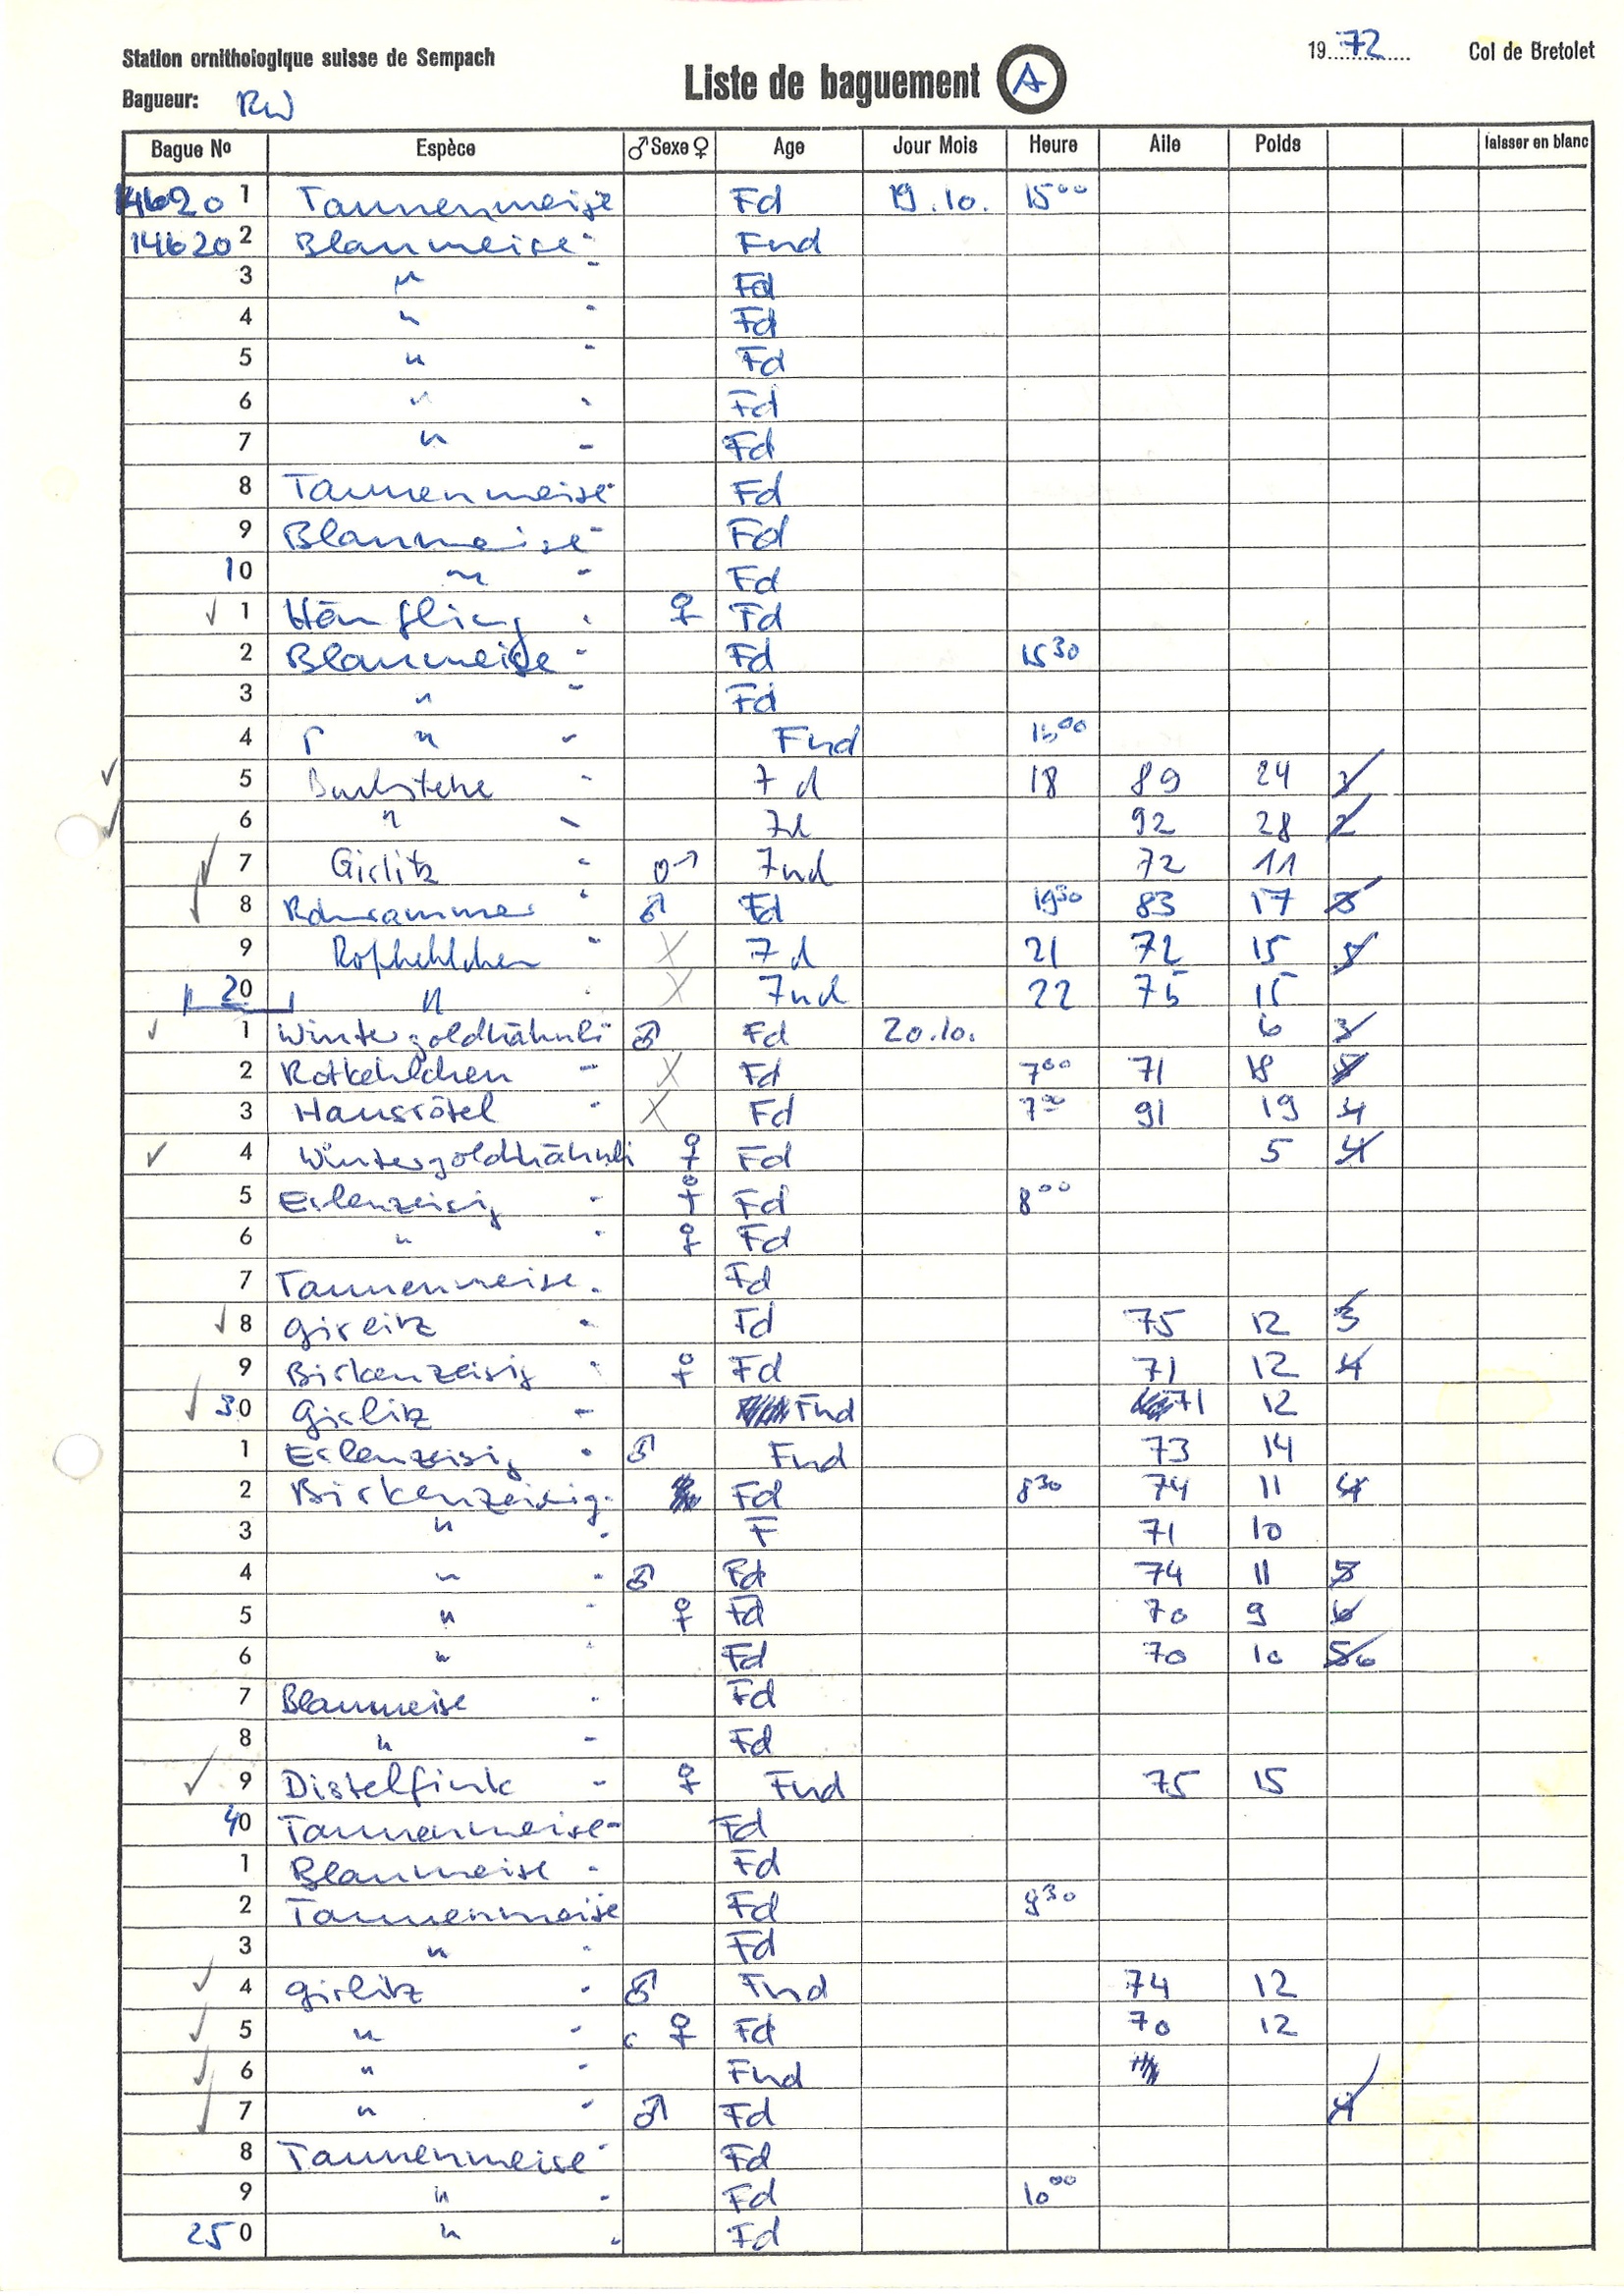 Station ornithologique suisse de Sempach
Bagueur: RW
Liste de baguement A
1972 Col de Bretolet
Bague No Espèce ♂ Sexe ♀ Age Jour Mois Heure Aile Poids laisser en blanc
14620 1 Tannenmeise Fd 19.10. 15 00
14620 2 Blaumeise - Fnd
3 " - Fd
4 " - Fd
5 " - Fd
6 " - Fd
7 " - Fd
8 Tannenmeise - Fd
9 Blaumeise - Fd
10 " - Fd
✓ 1 Hänfling - ♀ Fd
2 Blaumeise - Fd 15 30
3 " - Fd
4 " - Fnd 16 00
✓ 5 Bachstelze - 7d 18 89 24 3
✓ 6 " - 7d 92 28 2
✓ 7 Girlitz - ♂ 7nd 72 11
✓ 8 Rohrammer - ♂ Fd 19 30 83 17 5
9 Rotkehlchen - X 7d 21 72 15 5
20 " - X 7nd 22 75 15
✓ 1 Wintergoldhähnli - ♂ Fd 20.10. 6 3
2 Rotkehlchen - X Fd 7 00 71 18
3 Hausrötel - X Fd 91 19 4
✓ 4 Wintergoldhähnli ♀ Fd 5 4
5 Erlenzeisig - ♀ Fd 8 00
6 " - ♀ Fd
7 Tannenmeise - Fd
✓ 8 Girlitz - Fd 75 12 3
9 Birkenzeisig - ♀ Fd 71 12 4
✓ 30 Girlitz - Fnd 71 12
1 Erlenzeisig - ♂ Fnd 73 14
2 Birkenzeisig - Fd 8 30 74 11 4
3 " - F 71 10
4 " - ♂ Fd 74 11 5
5 " - ♀ Fd 70 9 6
6 " - Fd 70 10 5 6
7 Blaumeise - Fd
8 " - Fd
✓ 9 Distelfink - ♀ Fnd 75 15
40 Tannenmeise - Fd
1 Blaumeise - Fd
2 Tannenmeise Fd 9 30
3 " - Fd
✓ 4 Girlitz - ♂ Fnd 74 12
✓ 5 " - ♀ Fd 70 12
✓ 6 " - Fnd
✓ 7 " - ♂ Fd 4
8 Tannenmeise - Fd
9 " - Fd 10 00
250 " - Fd